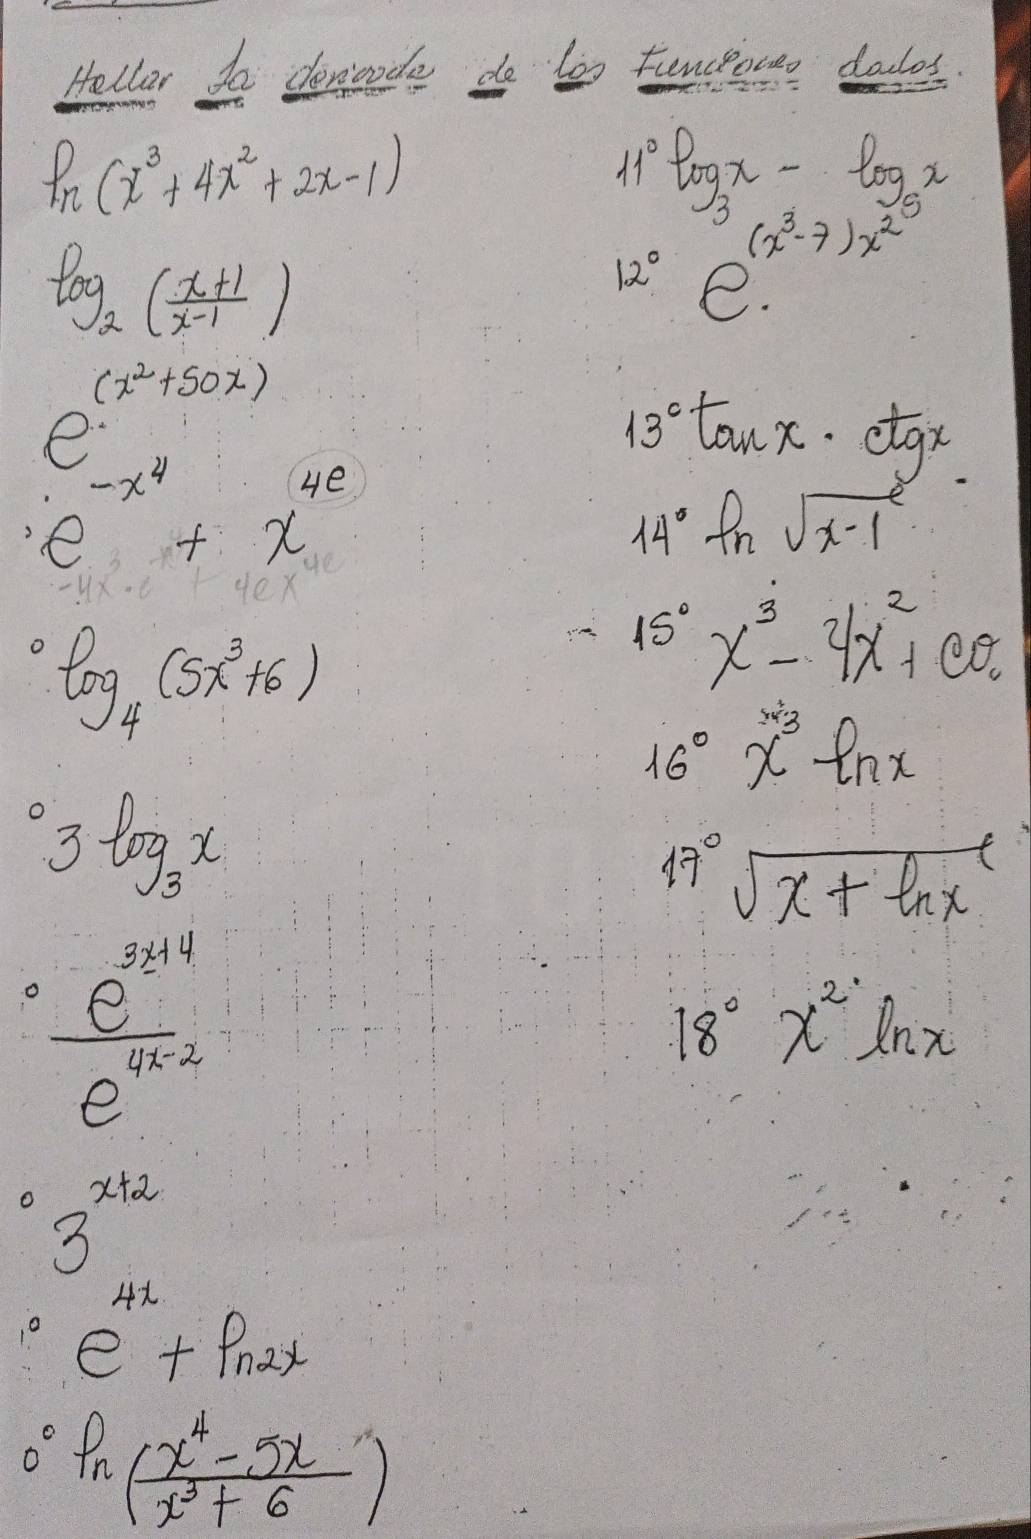 Hallar la derivada de las Funciones dadas.
ln (x³ + 4x² + 2x - 1)
log₂ (x+1 / x-1)
e^(x² + 50x)
e^-x⁴ + x^4e
-4x³·e + 4ex^4e
° log₄ (5x³+6)
° 3 log₃ x
° e^3x+4 / e^4x-2
° 3^x+2
° e^4x + ln2x
0° ln (x⁴ - 5x / x³ + 6)
11° log₃x - log₅x
12° e^(x³-7)x²
13° tan x · ctgx
14° ln √x-1
15° x³ - 4x² +
16° x³ lnx
17° √x + lnx
18° x² lnx